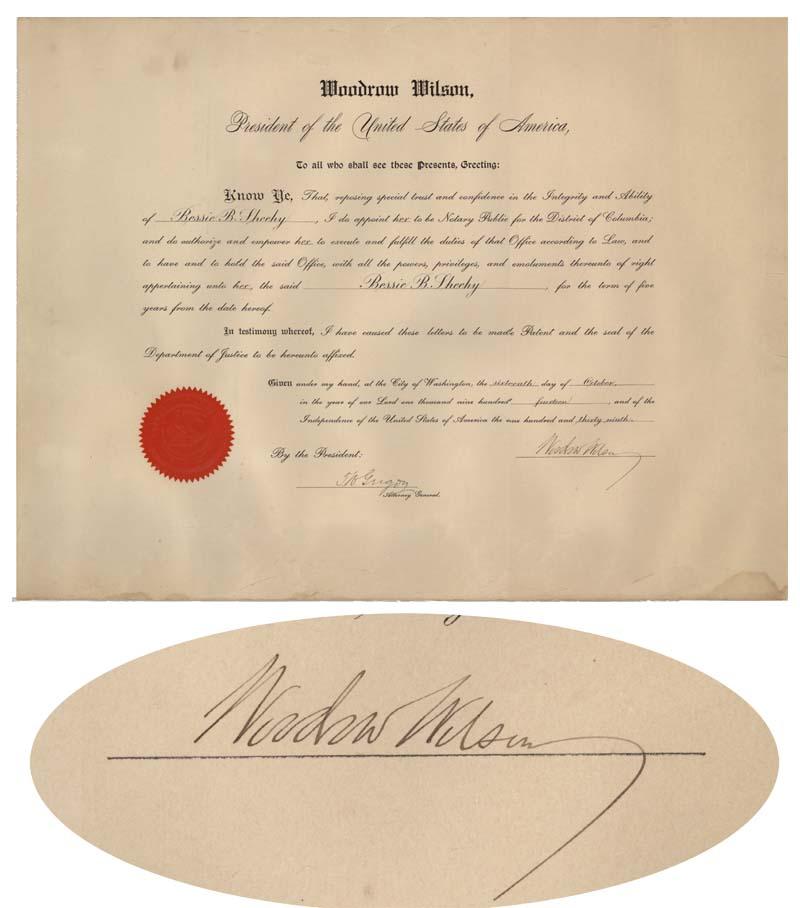 Woodrow Wilson,
President of the United States of America,
To all who shall see these Presents, Greeting:
Know Ye, That, reposing special trust and confidence in the Integrity and Ability
of Bessie B. Sheehy, I do appoint her to be Notary Public for the District of Columbia;
and do authorize and empower her to execute and fulfill the duties of that Office according to Law, and
to have and to hold the said Office, with all the powers, privileges, and emoluments thereunto of right
appertaining unto her, the said Bessie B. Sheehy, for the term of five
years from the date hereof.
In testimony whereof, I have caused these letters to be made Patent and the seal of the
Department of Justice to be hereunto affixed.
Given under my hand, at the City of Washington, the sixteenth day of October,
in the year of our Lord one thousand nine hundred fourteen, and of the
Independence of the United States of America the one hundred and thirty ninth.
Woodrow Wilson
By the President:
T W Gregory
Attorney General.
Woodrow Wilson